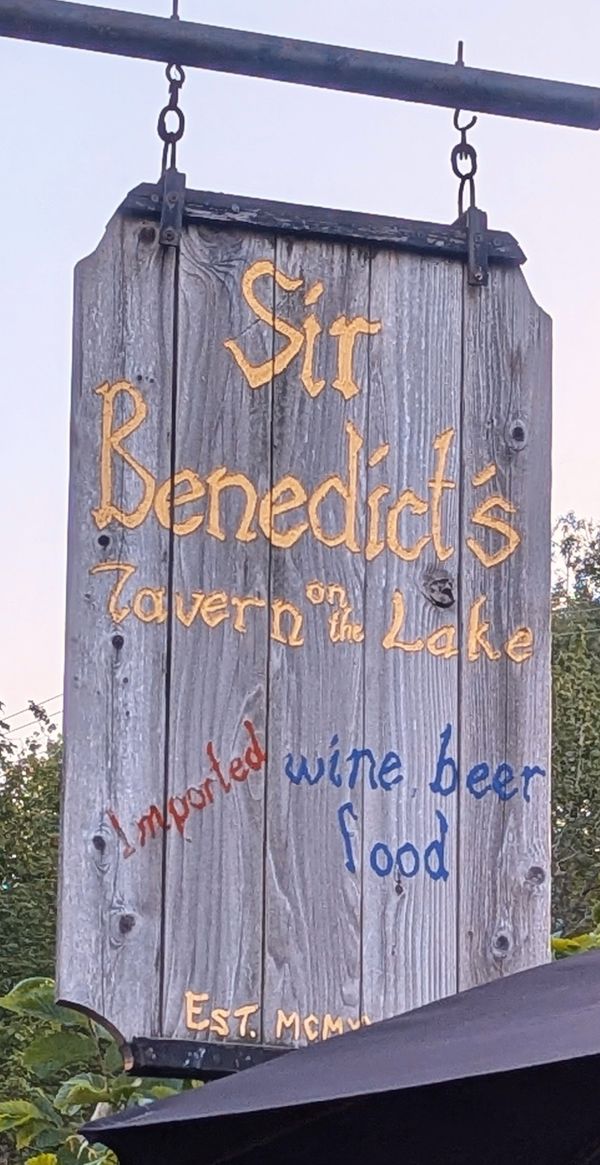 Sir
Benedict's
Tavern on the Lake
Imported wine, beer
food
EST.